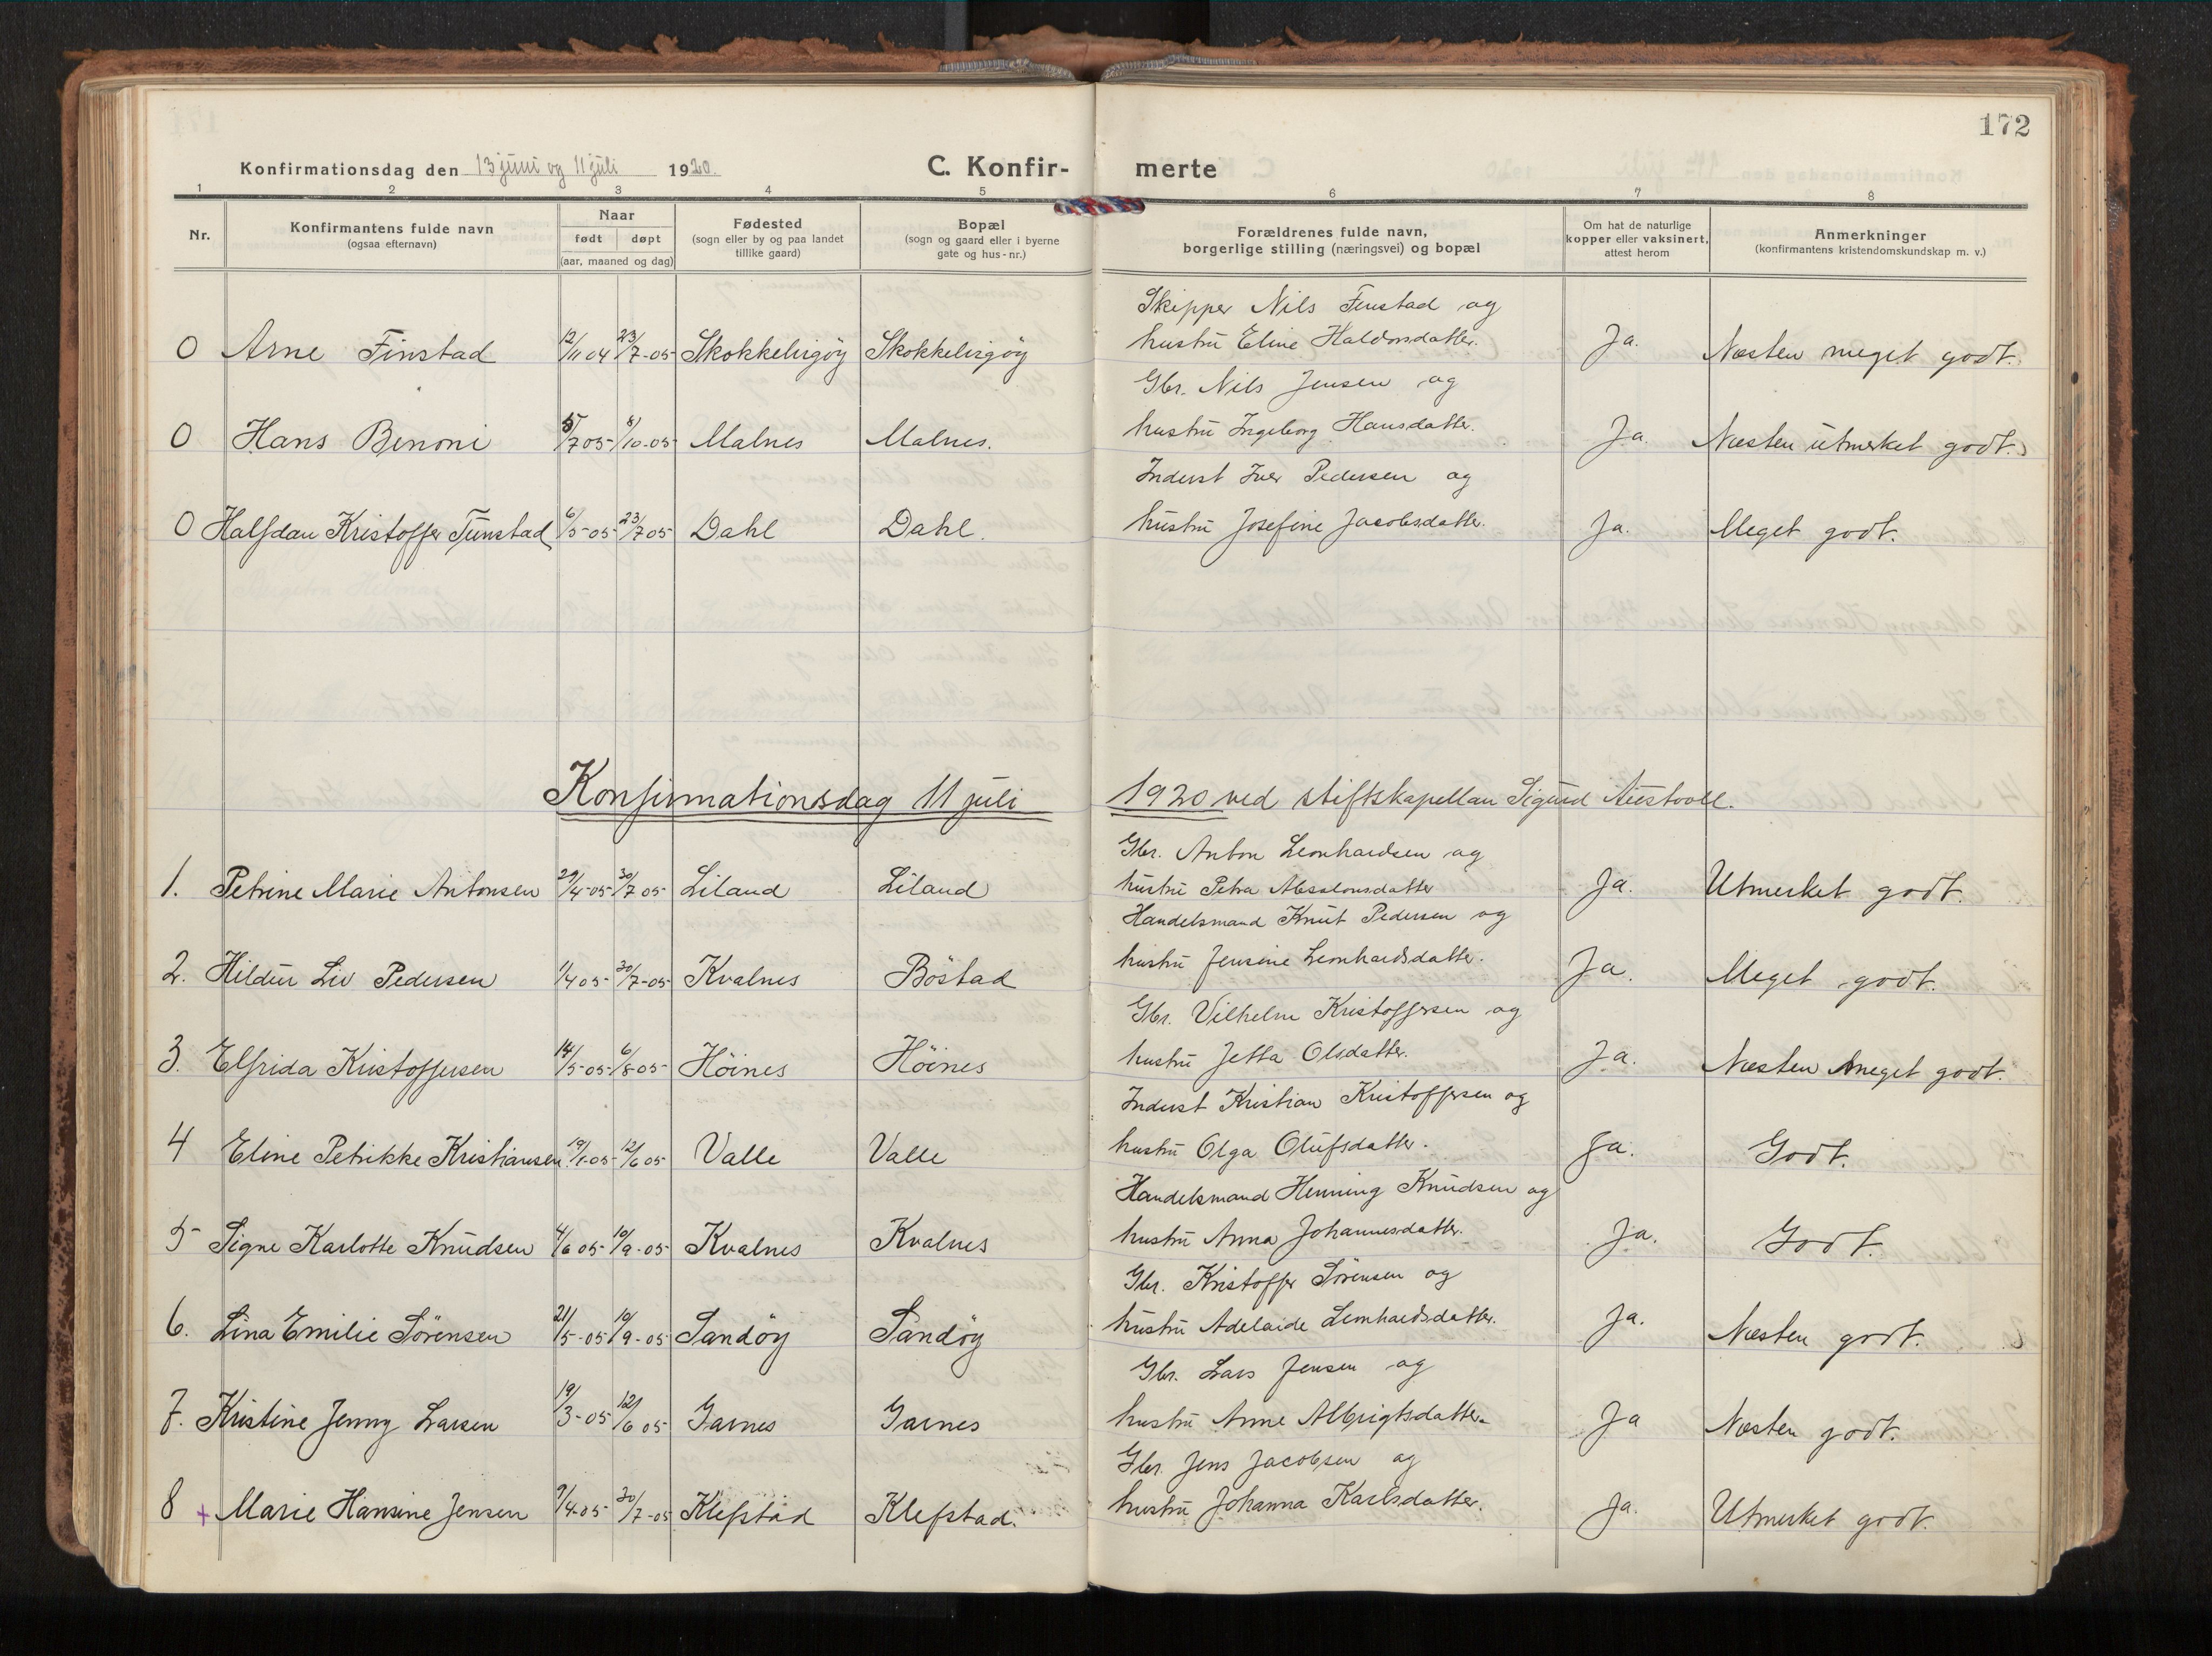 172
Konfirmationsdag den 13 juni og 11 juli 1920.
C. Konfir- merte
1 2 3 4 5 6 7 8
Nr.
Konfirmantens fulde navn
(ogsaa efternavn)
Naar
født døpt
(aar, maaned og dag)
Fødested
(sogn eller by og paa landet
tillike gaard)
Bopæl
(sogn og gaard eller i byerne
gate og hus-nr.)
Forældrenes fulde navn,
borgerlige stilling (næringsvei) og bopæl
Om hat de naturlige
kopper eller vaksinert,
attest herom
Anmerkninger
(konfirmantens kristendomskundskap m. v.)
Skipper Nils Finstad og
0 Arne Finstad 12/11 04 23/7-05 hustru Eline Haldorsdatter. Ja. Næsten meget godt.
Gbr. Nils Jensen og
0 Hans Benoni 5/7 05 8/10-05 Malnes Malnes. hustru Ingeborg Hansdatter. Ja. Næsten utmerket godt.
Inderst Iver Pedersen og
0 Halfdan Kristoffer 6/5-05 23/7 05 Dahl Dahl. hustru Josefine Jacobsdatter. Ja. Meget godt.
Konfirmationsdag 11 juli 1920 ved stiftskapellan Sigurd
Gbr. Anton Leonhardsen og
1. Petrine Marie Antonsen 29/4-05 30/7 05 Liland Liland hustru Petra Absalonsdatter Ja. Utmerket godt.
Handelsmand Knut Pedersen og
2. Hildur Liv Pedersen 1/4 05 30/7-05 Kvalnes Böstad hustru Jensine Leonhardsdatter. Ja. Meget godt.
Gbr. Vilhelm Kristoffersen og
3. Elfrida Kristoffersen 14/5-05 6/8 05 Höines Höines hustru Jetta Olsdatter. Ja. Næsten meget godt.
Inderst Kristian Kristoffersen og
4 Eline Petrikke Kristiansen 19/1-05 12/6 05 Valle Valle hustru Olga Olufsdatter. Ja. Godt.
Handelsmand Henning Knudsen og
5 Signe Karlotte Knudsen 4/6 05 10/9-05 Kvalnes Kvalnes hustru Anna Johannesdatter. Ja. Godt.
Gbr. Kristoffer Sörensen og
6. Lina Emilie Sörensen 21/5-05 10/9-05 Sandöy Sandöy hustru Adelaide Leonhardsdatter. Ja. Næsten godt.
Gbr. Lars Jensen og
7. Kristine Jenny Larsen 19/3-05 12/6 05 Garnes Garnes hustru Anne Albrigtsdatter. Ja Næsten godt.
Gbr. Jens Jacobsen og
8 + Marie Hansine Jensen 9/4-05 30/7-05 Klefstad Klefstad. hustru Johanna Karlsdatter. Ja. Utmerket godt.